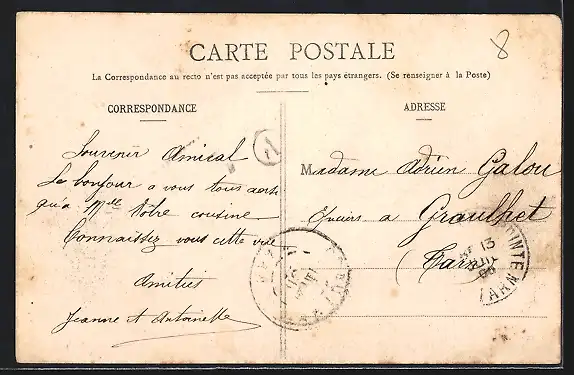 8
CARTE POSTALE
La Correspondance au recto n'est pas acceptée par tous les pays étrangers. (Se renseigner à la Poste)
CORRESPONDANCE
ADRESSE
Souvenir Amical
Le bonjour a vous tous aussi
qu'a Mlle Votre cousine
Connaissez vous cette vue
Amitiés
Jeanne et Antoinette
Madame Adrien Galou
a Graulhet
(Tarn)
13
TARN